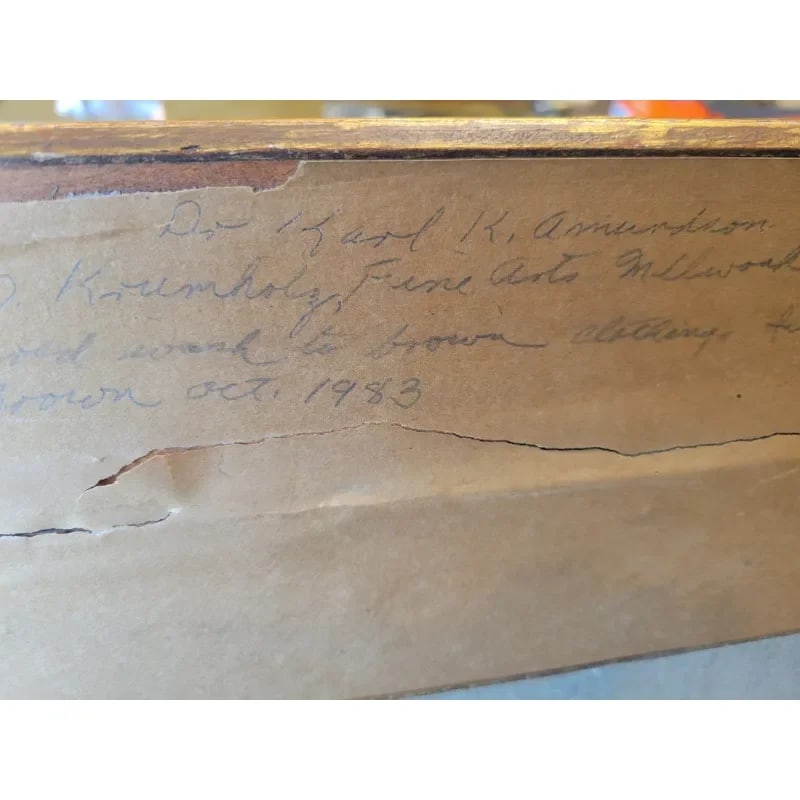 Dr Karl K. Amundson
D. Krumholz, Fine Arts Millwood
wash to brown clothing.
Brown Oct. 1983